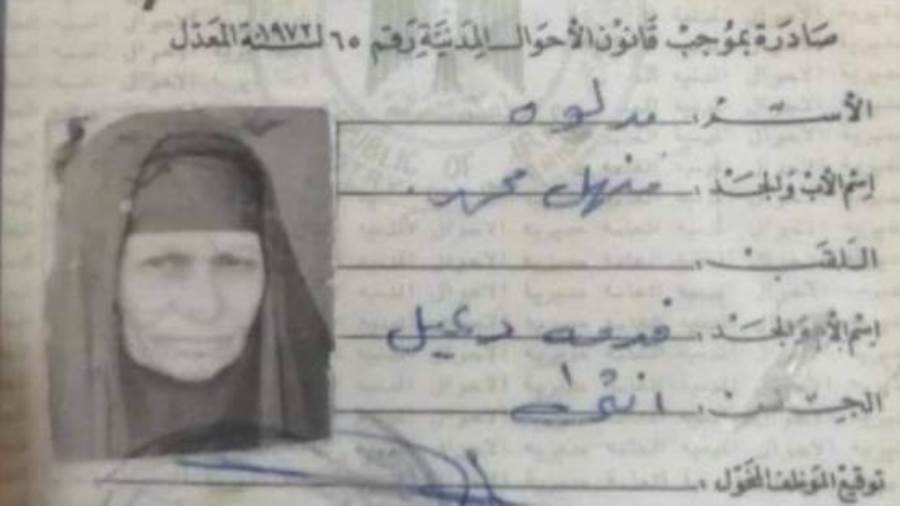 صادرة بموجب قانون الأحوال المدنية رقم ٦٥ لسنة ١٩٧٢ المعدل
الأسم: مدلوه
إسم الأب والجد: منهل محمد
اللقب:
إسم الأم والجد: فدعه دعيل
الجنس: انثى
توقيع الموظف المخول: